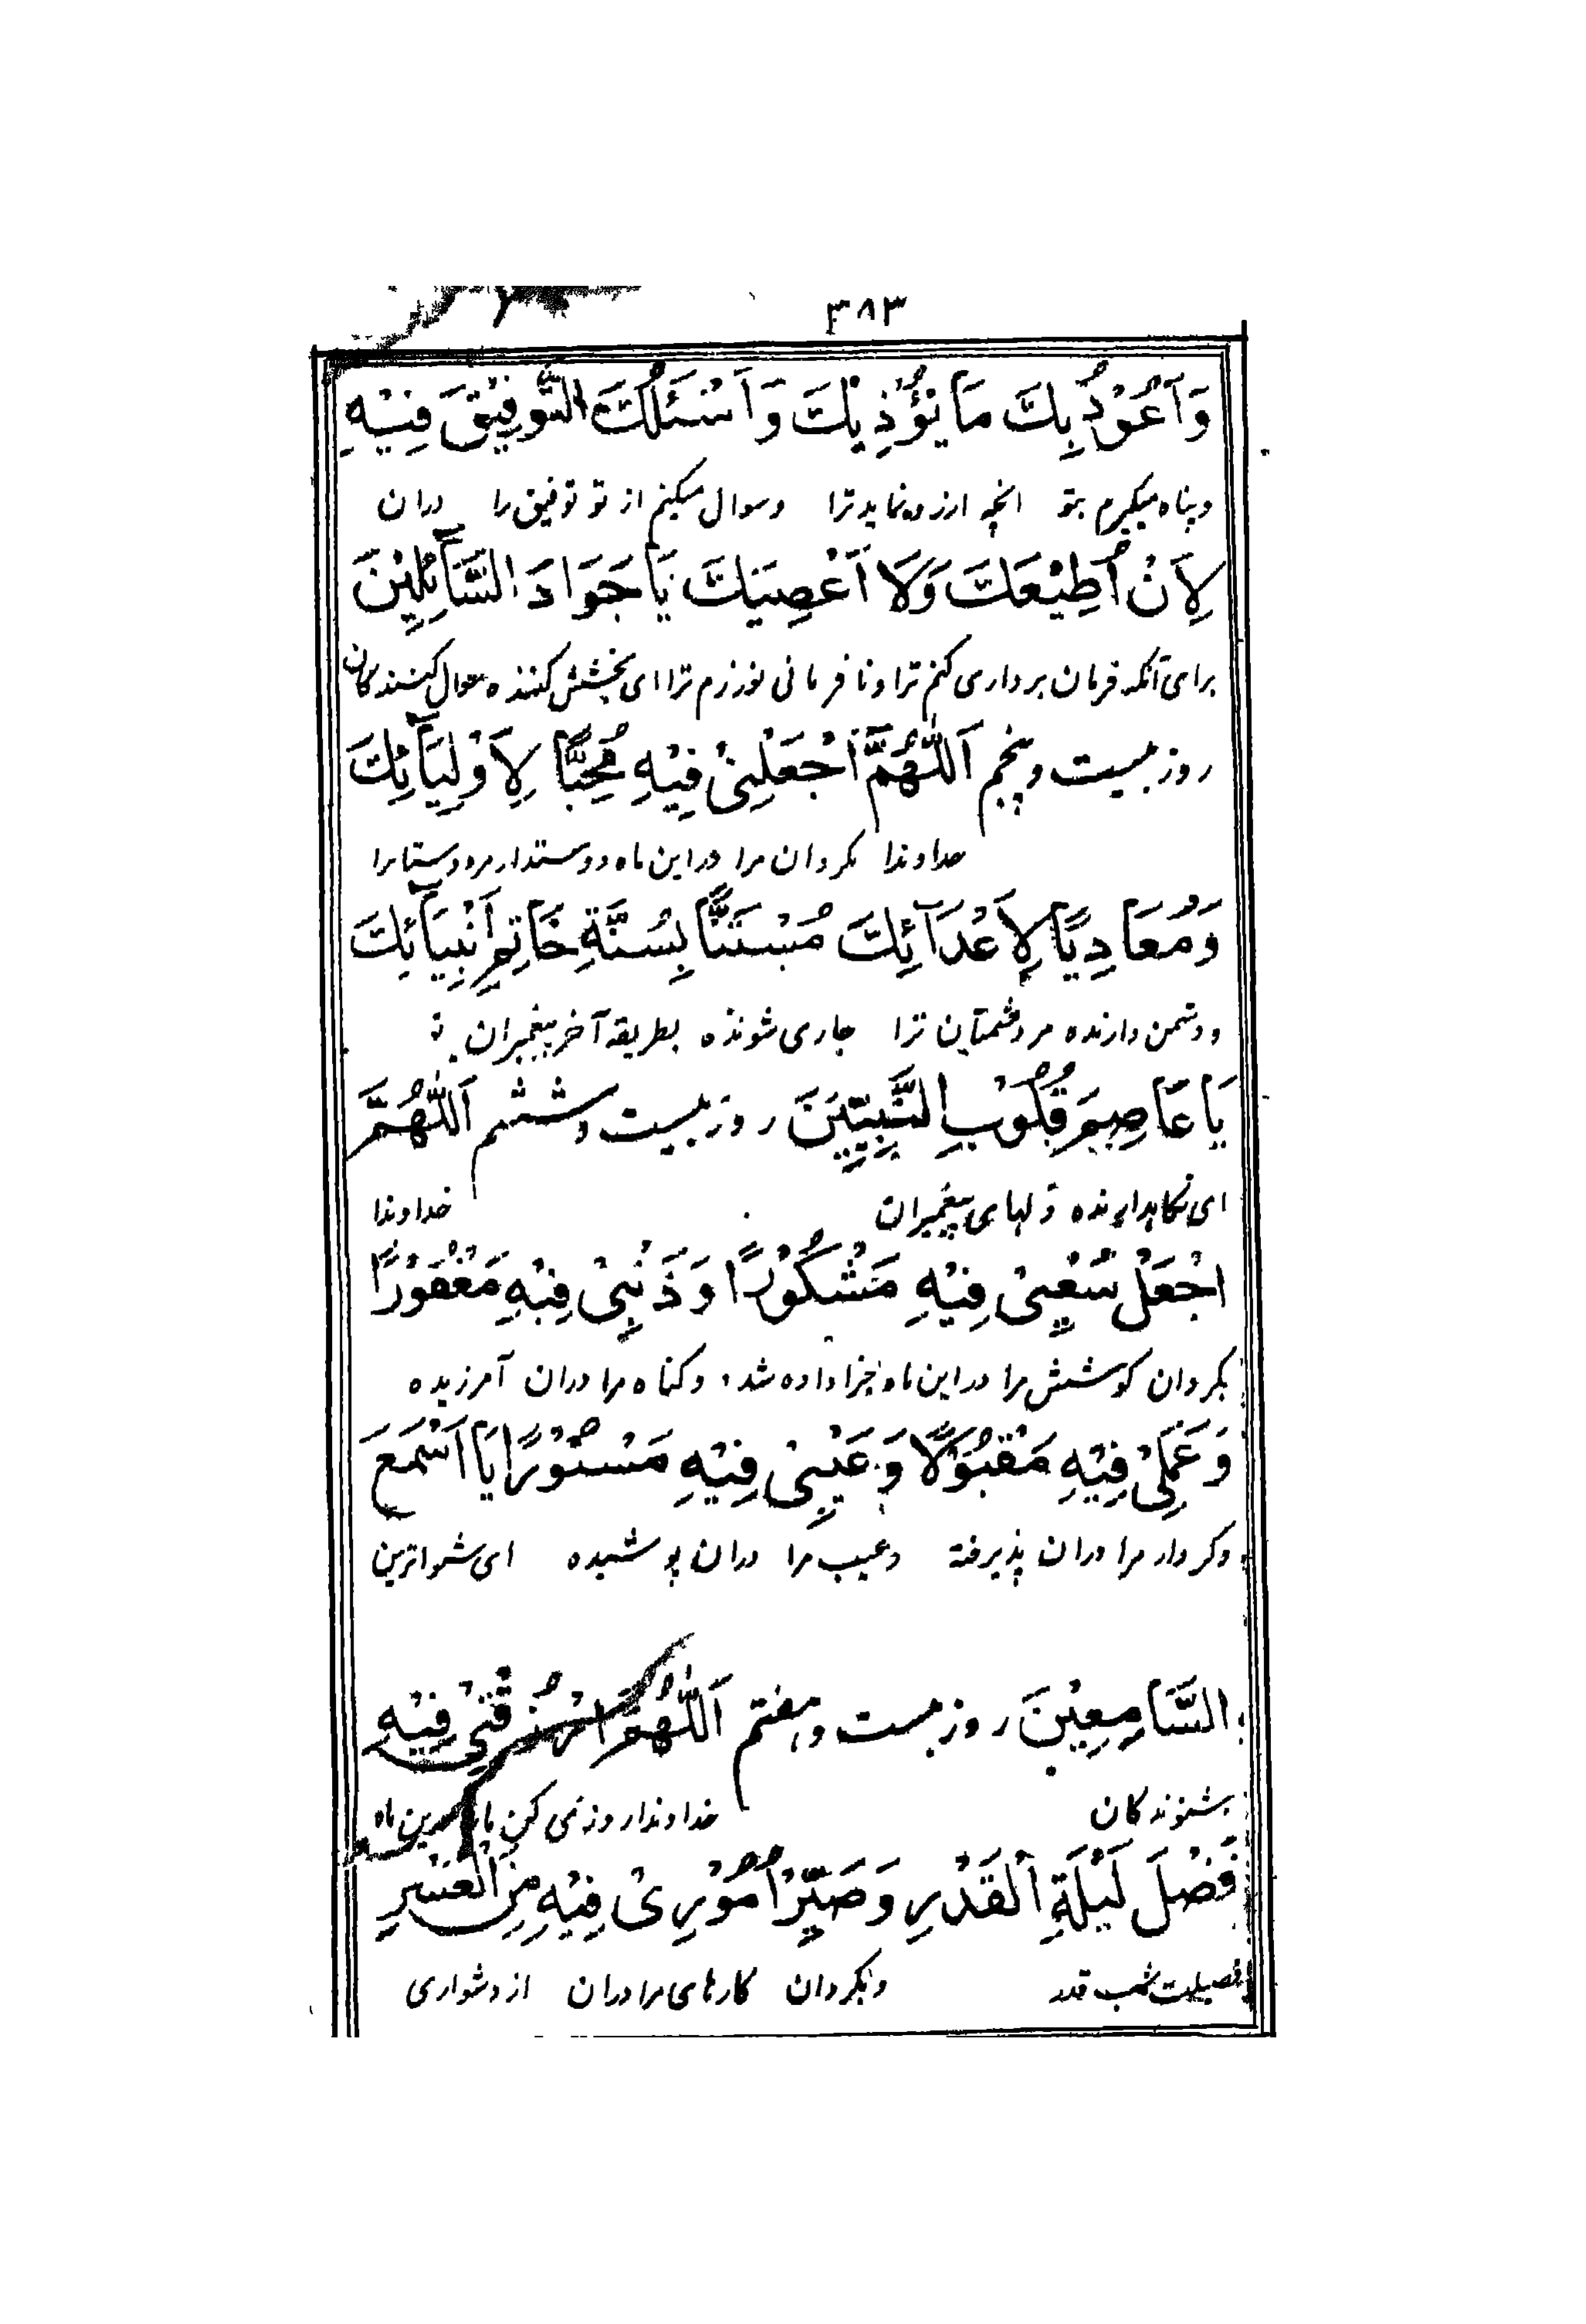 ٣٨٣
وَاَعُوْذُ بِكَ مَا يُؤْذِيْكَ وَاَسْئَلُكَ التَّوْفِيْقَ فِيْهِ
وپناه میگیرم بتو انچه ازرده نماید ترا وسوال میکنم از تو توفیق را دران
لِاَنْ اُطِيْعَكَ وَلَا اَعْصِيَكَ يَا جَوَادَ السَّآئِلِيْنَ
برای آنکه فرمان برداری کنم ترا ونا فرمانی نورزم ترا ای بخشش کننده سوال کنندکان
روز بیست وپنجم اَللّٰهُمَّ اَجْعَلْنِىْ فِيْهِ مُحِبًّا لِاَوْلِيَآئِكَ
خداوندا بکردان مرا دراین ماه دوستدار مر دوستانرا
وَمُعَادِيًا لِاَعْدَآئِكَ مُسْتَنًّا بِسُنَّةِ خَاتِمِ اَنْبِيَآئِكَ
ودشمن دارنده مر دشمنان ترا جاری شونده بطریقه آخر پیغمبران تو
يَا عَاصِمَ قُلُوْبِ النَّبِيِّيْنَ روز بیست وششم اَللّٰهُمَّ
ای نکاهدارنده دلهای پیغمبران خداوندا
اجْعَلْ سَعْيِىْ فِيْهِ مَشْكُوْرًا وَذَنْبِىْ فِيْهِ مَغْفُوْرًا
بکردان کوشش مرا دراین ماه جزا داده شده وکناه مرا دران آمرزیده
وَعَمَلِىْ فِيْهِ مَقْبُوْلًا وَعَيْبِىْ فِيْهِ مَسْتُوْرًا يَا اَسْمَعَ
وکردار مرا دران پذیرفته وعیب مرا دران پوشیده ای شنواترین
السَّامِعِيْنَ روز بیست وهفتم اَللّٰهُمَّ ارْزُقْنِىْ فِيْهِ
شنوندکان خداوندا روزی کن مرا درین ماه
فَضْلَ لَيْلَةِ الْقَدْرِ وَصَيِّرْ اُمُوْرِىْ فِيْهِ مِنَ الْعُسْرِ
فضیلت شب قدر وبکردان کارهای مرا دران از دشواری